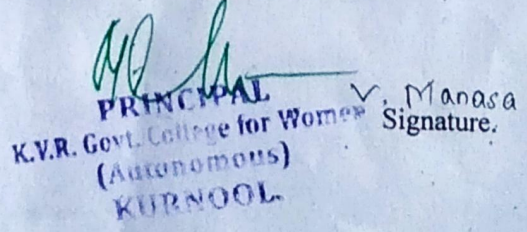 PRINCIPAL
K.V.R. Govt. College for Women
(Autonomous)
KURNOOL.
V. Manasa
Signature.